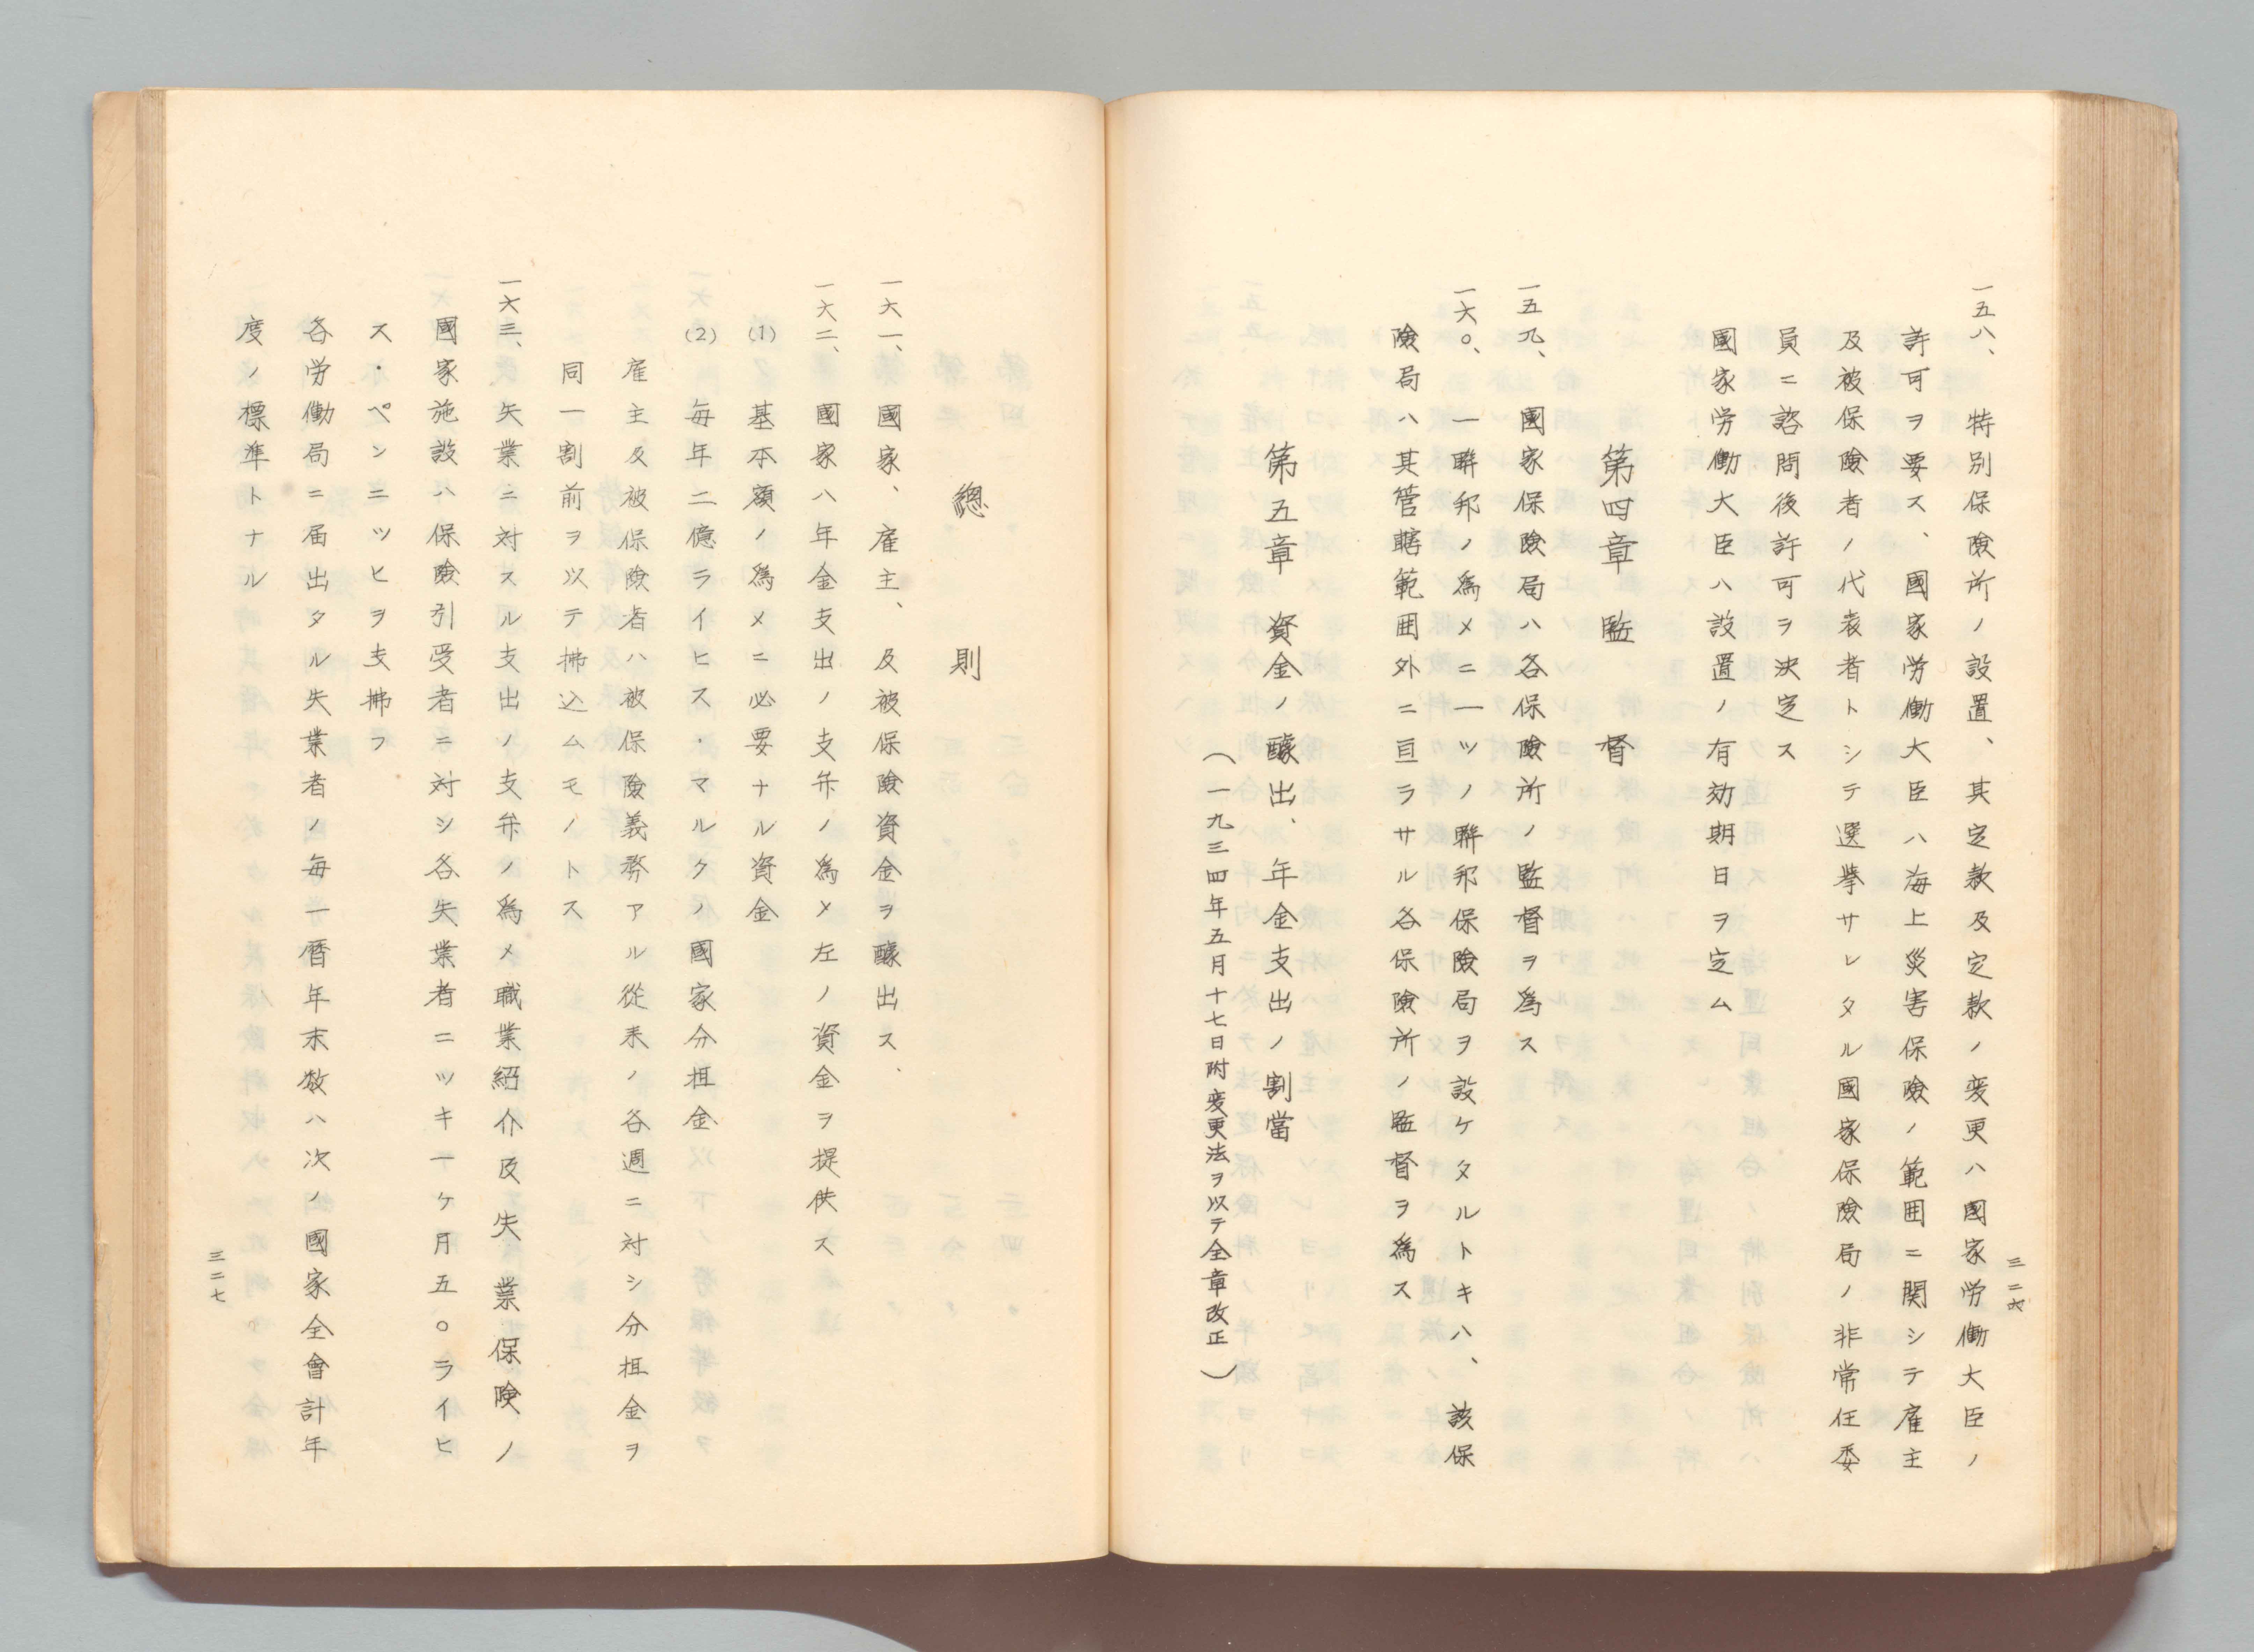 三二六
一五八、特別保險所ノ設置、其定款及定款ノ変更ハ國家労働大臣ノ
許可ヲ要ス、國家労働大臣ハ海上災害保險ノ範囲ニ関シテ雇主
及被保險者ノ代表者トシテ選挙サレタル國家保險局ノ非常任委
員ニ諮問後許可ヲ決定ス
國家労働大臣ハ設置ノ有効期日ヲ定ム
第四章 監督
一五九、國家保險局ハ各保險所ノ監督ヲ爲ス
一六〇、一聯邦ノ爲メニ一ツノ聯邦保險局ヲ設ケタルトキハ、該保
險局ハ其管轄範囲外ニ亘ラサル各保險所ノ監督ヲ爲ス
第五章 資金ノ醵出、年金支出ノ割當
(一九三四年五月十七日附変更法ヲ以テ全章改正)
總則
一六一、國家、雇主、及被保險資金ヲ醵出ス、
一六二、國家ハ年金支出ノ支弁ノ爲メ左ノ資金ヲ提供ス
(1) 基本額ノ爲メニ必要ナル資金
(2) 毎年二億ライヒス・マルクノ國家分担金
雇主及被保險者ハ被保險義務アル從来ノ各週ニ対シ分担金ヲ
同一割前ヲ以テ拂込ムモノトス
一六三、矢業ニ対スル支出ノ支弁ノ爲メ職業紹介及失業保険ノ
國家施設ハ保險引受者ニ対シ各失業者ニツキ一ケ月五〇ライヒ
ス・ペンニツヒヲ支拂フ
各労働局ニ届出タル失業者ノ毎一暦年末数ハ次ノ國家全會計年
度ノ標準トナル
三二七